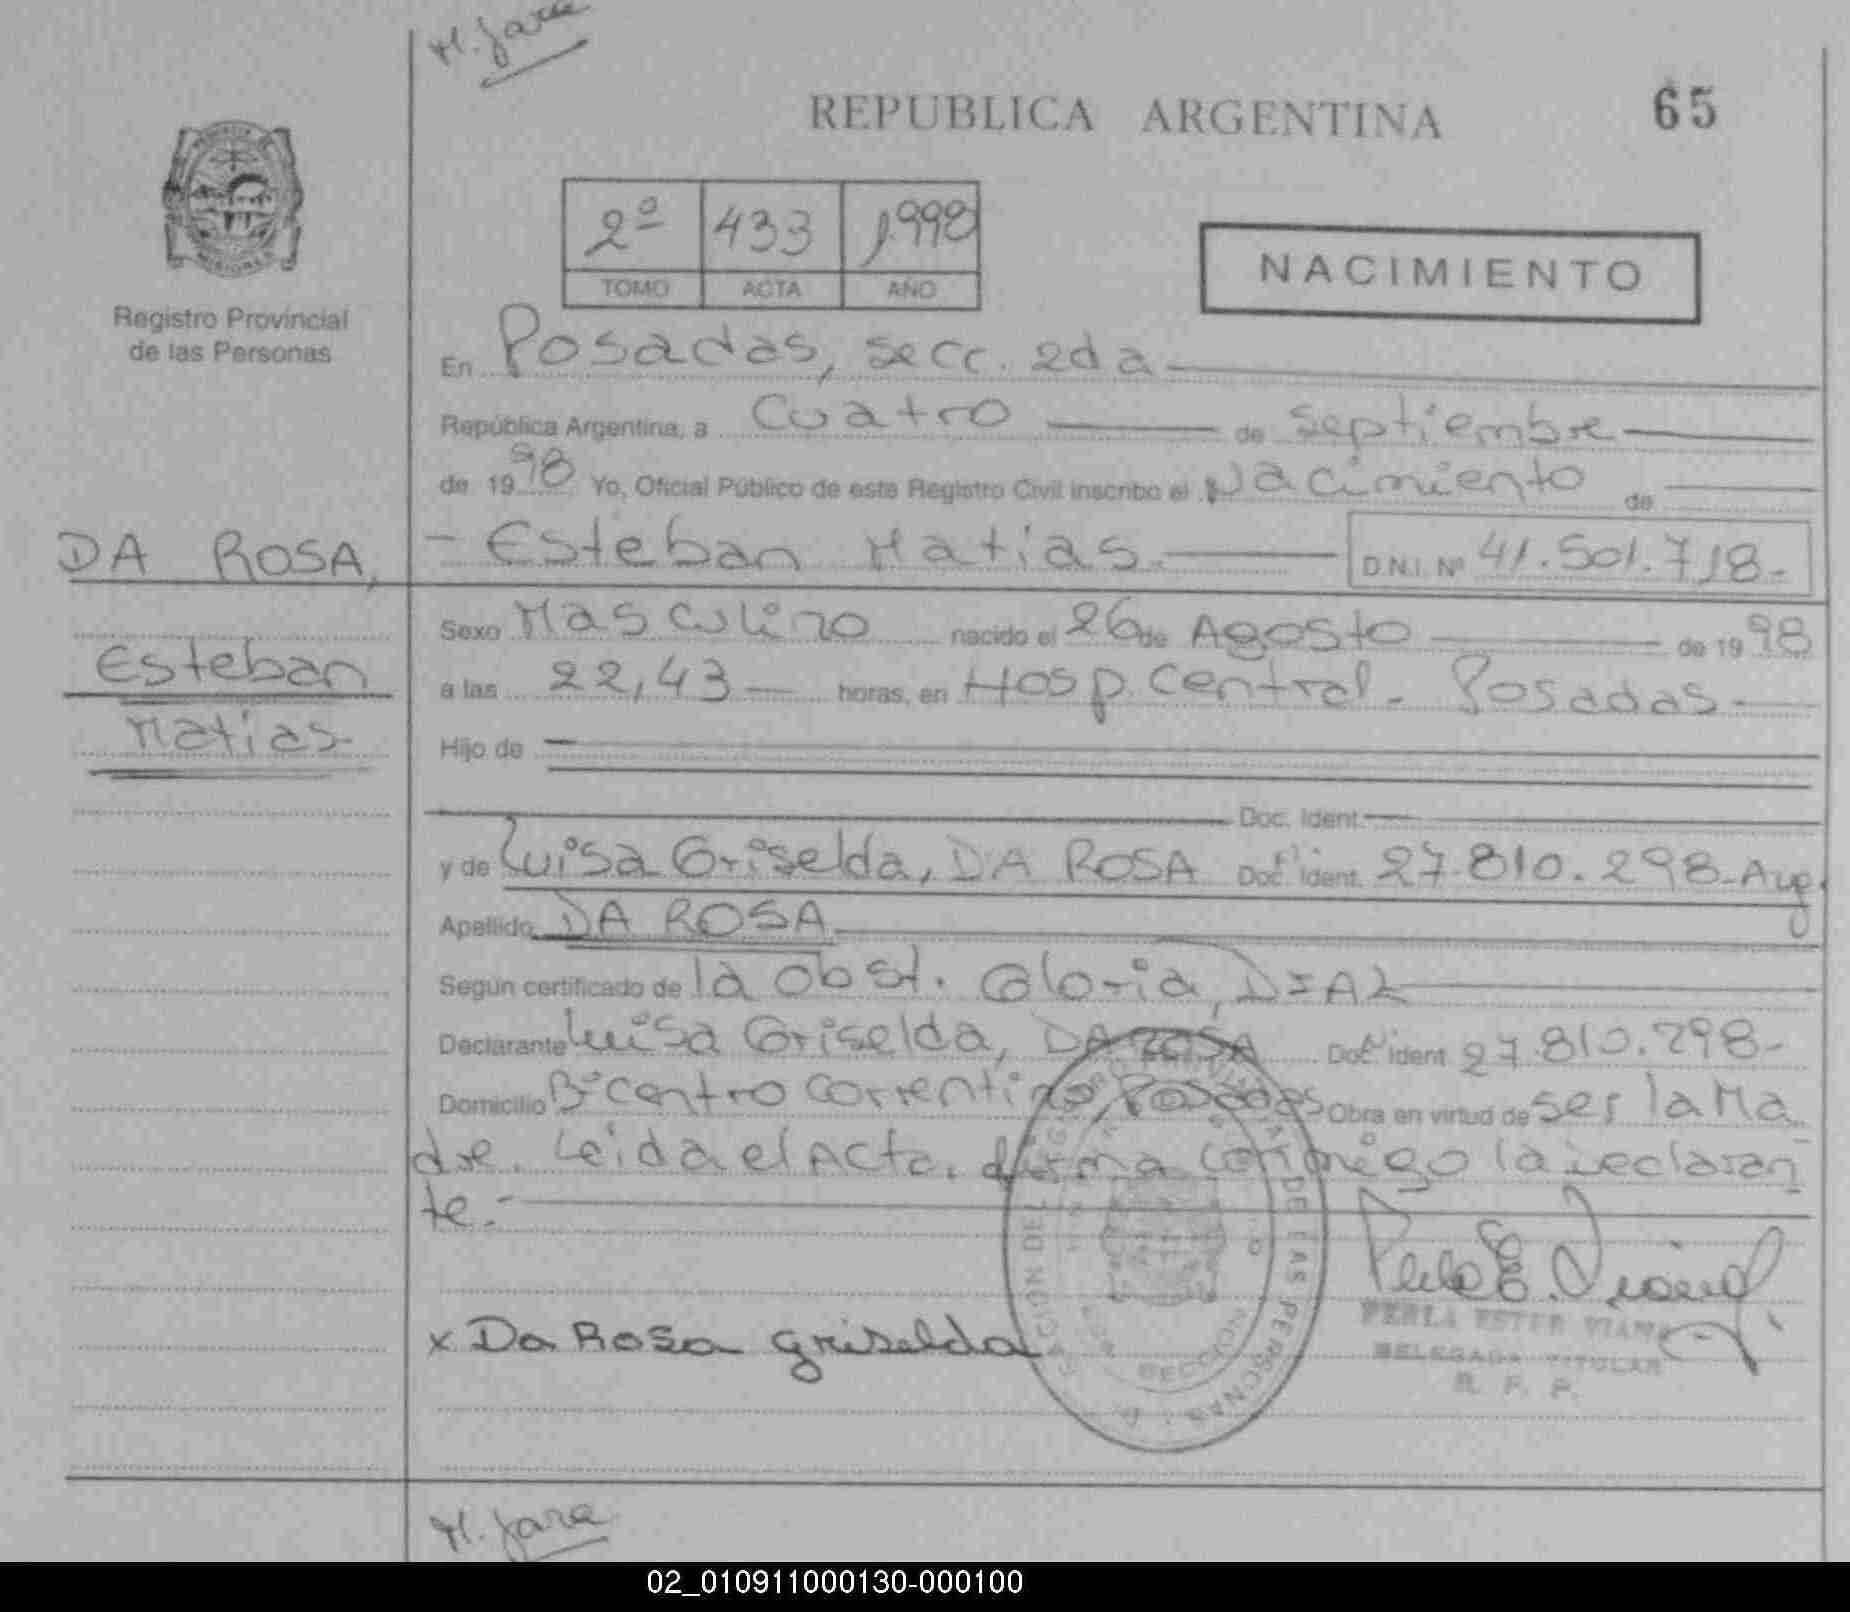 M. Jara
REPUBLICA ARGENTINA
65
2º 433 1998
TOMO ACTA AÑO
NACIMIENTO
MISIONES
Registro Provincial
de las Personas
En Posadas, secc. 2da
República Argentina, a Cuatro de septiembre
de 1998 Yo, Oficial Público de este Registro Civil inscribo el Nacimiento de
DA ROSA, Esteban Matias. D.N.I. Nº 41.501.718-
Esteban
Matias-
Sexo Masculino nacido el 26 de Agosto de 1998
a las 22,43 horas, en Hosp. Central - Posadas
Hijo de
Doc. Ident.
y de Luisa Griselda, DA ROSA Doc. Ident. 27.810.298-Arg.
Apellido DA ROSA
Según certificado de la Obst. Gloria, DIAZ
Declarante Luisa Griselda, DA ROSA Doc. Ident. 27.810.298-
Domicilio Bº Centro Correntino, Posadas Obra en virtud de ser la Ma
dre. Leida el Acta, firma conmigo la declaran
te.-
x Da Rosa Griselda
DEL REGISTRO PROVINCIAL DE LAS PERSONAS
SECCION
PERLA ESTER VIANA
DELEGADA TITULAR
R. P. P.
M. Jara
02_010911000130-000100